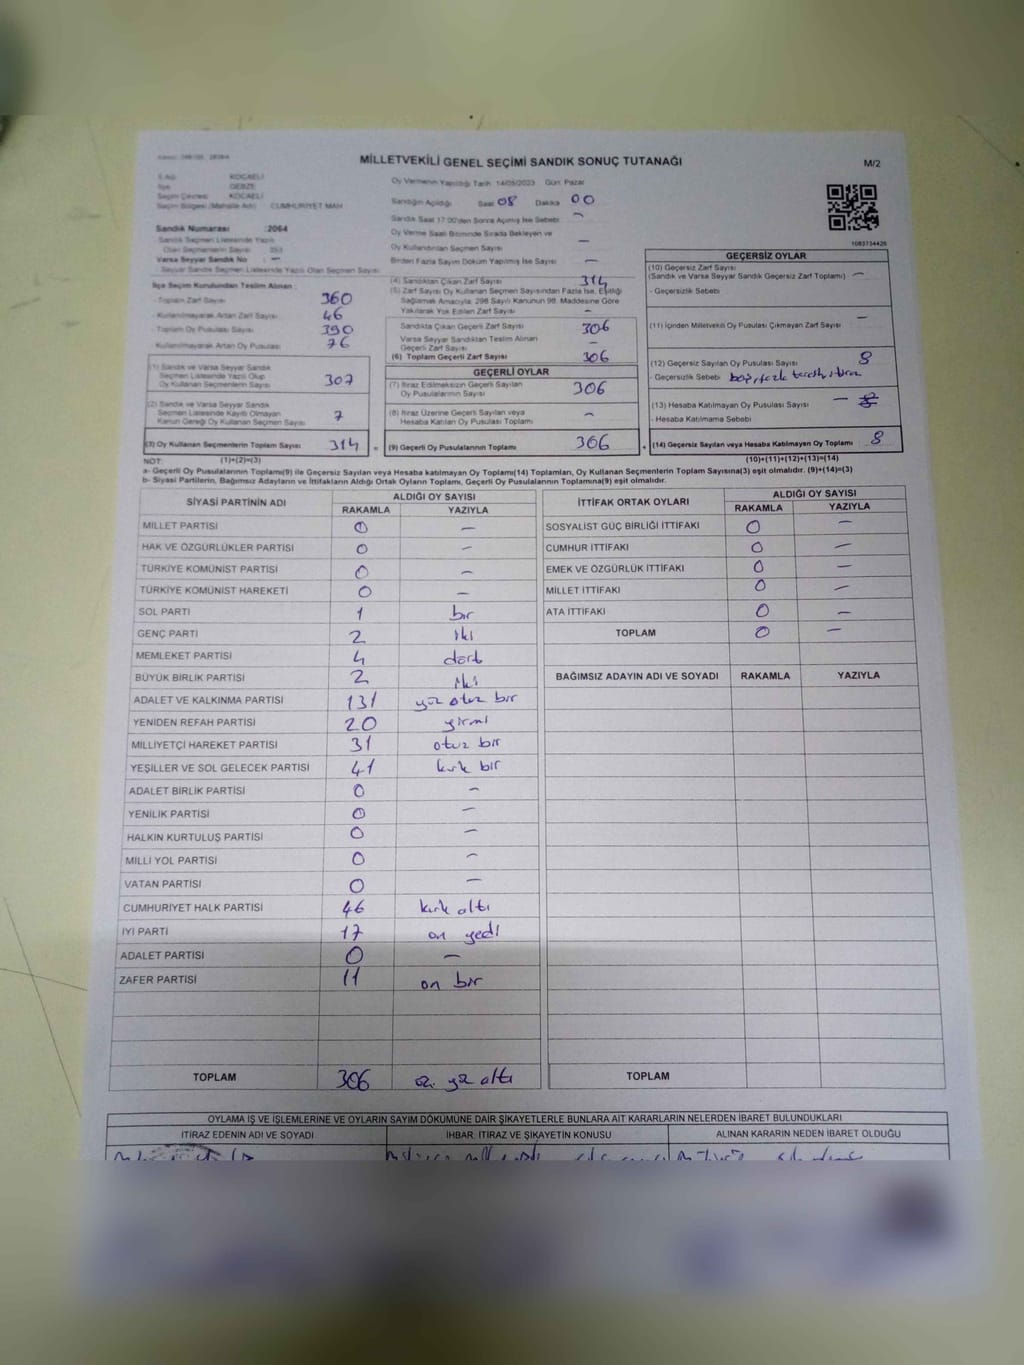 MİLLETVEKİLİ GENEL SEÇİMİ SANDIK SONUÇ TUTANAĞI
M/2
KOCAELİ
GEBZE
KOCAELİ
Seçim Bölgesi (Mahalle Adı) CUMHURİYET MAH
Oy Vermenin Yapıldığı Tarih 14/05/2023 Gün: Pazar
Sandığın Açıldığı Saat 08 Dakika 00
Sandık Saat 17:00'den Sonra Açılmış İse Sebebi: –
Oy Verme Saati Bitiminde Sırada Bekleyen ve
Oy Kullandırılan Seçmen Sayısı –
Birden Fazla Sayım Döküm Yapılmış İse Sayısı –
Sandık Numarası :2064
Sandık Seçmen Listesinde Yazılı
Olan Seçmenlerin Sayısı 353
Varsa Seyyar Sandık No : –
Seyyar Sandık Seçmen Listesinde Yazılı Olan Seçmen Sayısı
İlçe Seçim Kurulundan Teslim Alınan :
- Toplam Zarf Sayısı 360
- Kullanılmayarak Artan Zarf Sayısı 46
- Toplam Oy Pusulası Sayısı 390
- Kullanılmayarak Artan Oy Pusulası 76
(1) Sandık ve Varsa Seyyar Sandık
Seçmen Listesinde Yazılı Olup
Oy Kullanan Seçmenlerin Sayısı 307
(2) Sandık ve Varsa Seyyar Sandık
Seçmen Listesinde Kayıtlı Olmayan
Kanun Gereği Oy Kullanan Seçmen Sayısı 7
(3) Oy Kullanan Seçmenlerin Toplam Sayısı 314 =
(4) Sandıktan Çıkan Zarf Sayısı 314
(5) Zarf Sayısı Oy Kullanan Seçmen Sayısından Fazla İse, Eşitliği
Sağlamak Amacıyla, 298 Sayılı Kanunun 98. Maddesine Göre
Yakılarak Yok Edilen Zarf Sayısı –
Sandıkta Çıkan Geçerli Zarf Sayısı 306
Varsa Seyyar Sandıktan Teslim Alınan
Geçerli Zarf Sayısı –
(6) Toplam Geçerli Zarf Sayısı 306
GEÇERLİ OYLAR
(7) İtiraz Edilmeksizin Geçerli Sayılan
Oy Pusulalarının Sayısı 306
(8) İtiraz Üzerine Geçerli Sayılan veya
Hesaba Katılan Oy Pusulaları Toplamı –
(9) Geçerli Oy Pusulalarının Toplamı 306 +
1083734426
GEÇERSİZ OYLAR
(10) Geçersiz Zarf Sayısı
(Sandık ve Varsa Seyyar Sandık Geçersiz Zarf Toplamı) –
- Geçersizlik Sebebi
(11) İçinden Milletvekili Oy Pusulası Çıkmayan Zarf Sayısı –
(12) Geçersiz Sayılan Oy Pusulası Sayısı 8
- Geçersizlik Sebebi
(13) Hesaba Katılmayan Oy Pusulası Sayısı –
- Hesaba Katılmama Sebebi
(14) Geçersiz Sayılan veya Hesaba Katılmayan Oy Toplamı 8
NOT: (1)+(2)=(3) (10)+(11)+(12)+(13)=(14)
a- Geçerli Oy Pusulalarının Toplamı(9) ile Geçersiz Sayılan veya Hesaba katılmayan Oy Toplamı(14) Toplamları, Oy Kullanan Seçmenlerin Toplam Sayısına(3) eşit olmalıdır. (9)+(14)=(3)
b- Siyasi Partilerin, Bağımsız Adayların ve İttifakların Aldığı Ortak Oyların Toplamı, Geçerli Oy Pusulalarının Toplamına(9) eşit olmalıdır.
SİYASİ PARTİNİN ADI ALDIĞI OY SAYISI
RAKAMLA YAZIYLA
MİLLET PARTİSİ 0 –
HAK VE ÖZGÜRLÜKLER PARTİSİ 0 –
TÜRKİYE KOMÜNİST PARTİSİ 0 –
TÜRKİYE KOMÜNİST HAREKETİ 0 –
SOL PARTİ 1 bir
GENÇ PARTİ 2 iki
MEMLEKET PARTİSİ 4 dört
BÜYÜK BİRLİK PARTİSİ 2 iki
ADALET VE KALKINMA PARTİSİ 131 yüz otuz bir
YENİDEN REFAH PARTİSİ 20 yirmi
MİLLİYETÇİ HAREKET PARTİSİ 31 otuz bir
YEŞİLLER VE SOL GELECEK PARTİSİ 41 kırk bir
ADALET BİRLİK PARTİSİ 0 –
YENİLİK PARTİSİ 0 –
HALKIN KURTULUŞ PARTİSİ 0 –
MİLLİ YOL PARTİSİ 0 –
VATAN PARTİSİ 0 –
CUMHURİYET HALK PARTİSİ 46 kırk altı
İYİ PARTİ 17 on yedi
ADALET PARTİSİ 0 –
ZAFER PARTİSİ 11 on bir
TOPLAM 306 üç yüz altı
İTTİFAK ORTAK OYLARI ALDIĞI OY SAYISI
RAKAMLA YAZIYLA
SOSYALİST GÜÇ BİRLİĞİ İTTİFAKI 0 –
CUMHUR İTTİFAKI 0 –
EMEK VE ÖZGÜRLÜK İTTİFAKI 0 –
MİLLET İTTİFAKI 0 –
ATA İTTİFAKI 0 –
TOPLAM 0 –
BAĞIMSIZ ADAYIN ADI VE SOYADI RAKAMLA YAZIYLA
TOPLAM
OYLAMA İŞ VE İŞLEMLERİNE VE OYLARIN SAYIM DÖKÜMÜNE DAİR ŞİKAYETLERLE BUNLARA AİT KARARLARIN NELERDEN İBARET BULUNDUKLARI
İTİRAZ EDENİN ADI VE SOYADI İHBAR, İTİRAZ VE ŞİKAYETİN KONUSU ALINAN KARARIN NEDEN İBARET OLDUĞU